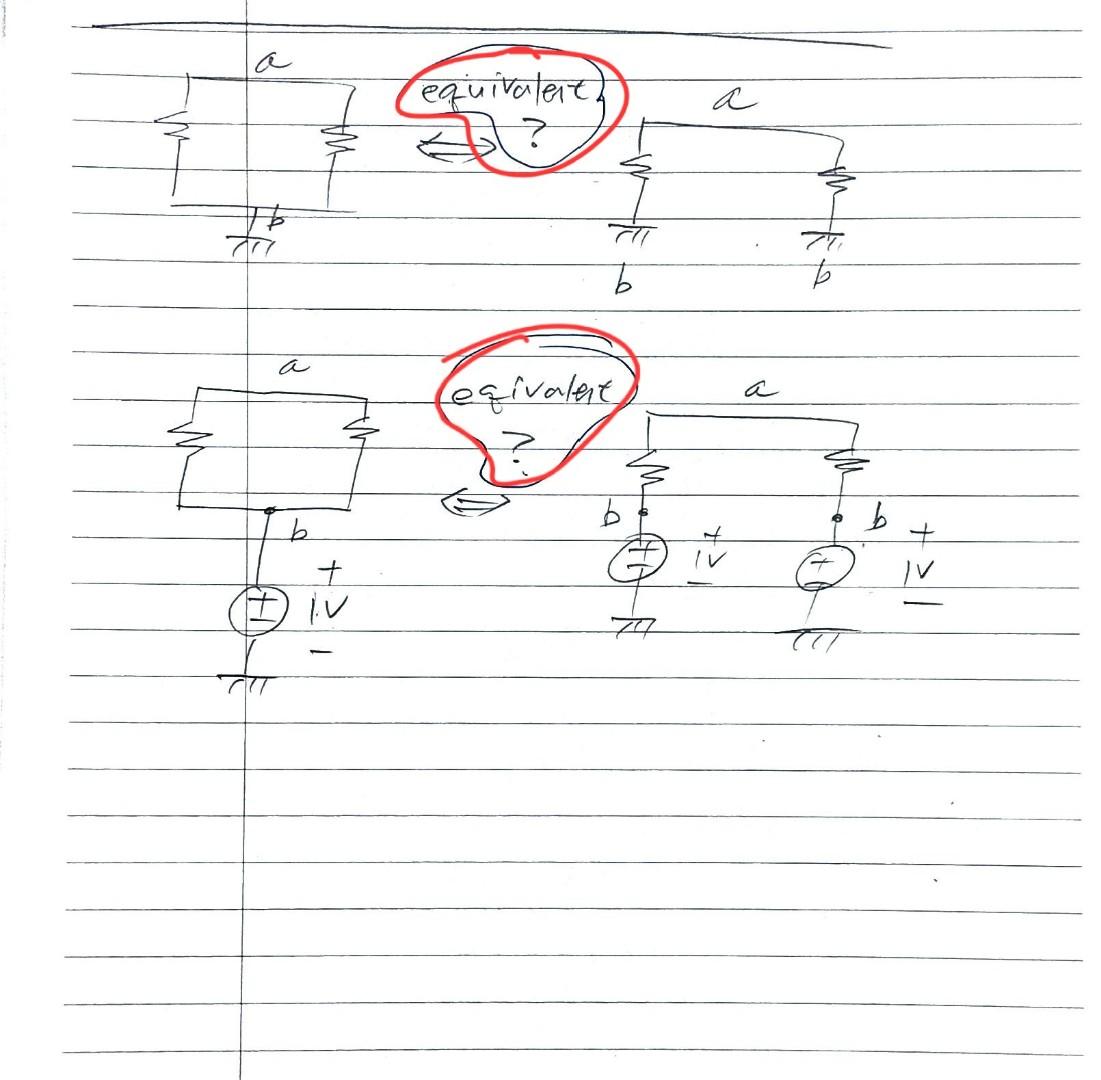 a
equivalent
?
a
b
b
b
a
equivalent
?
a
b
+
1V
−
b
+
1V
−
b
+
1V
−